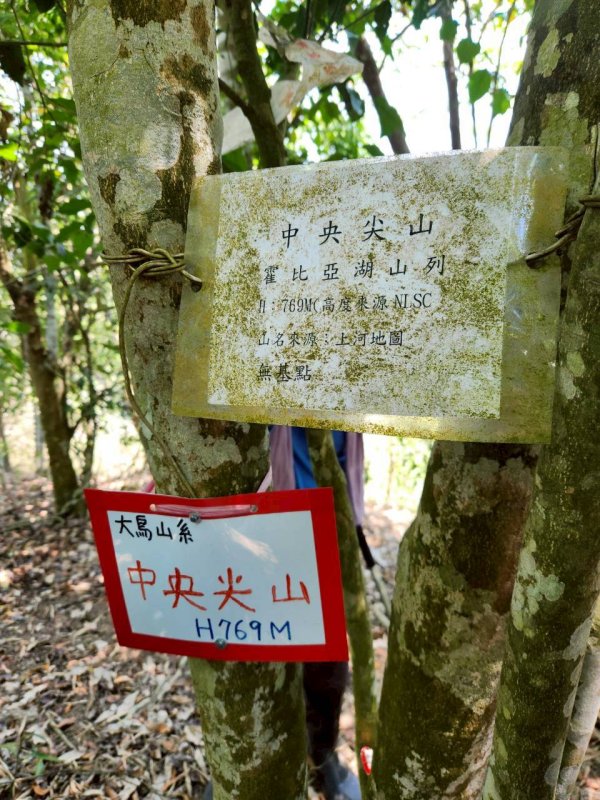 中央尖山
霍比亞湖山列
H：769M(高度來源 NLSC
山名來源：上河地圖
無基點
大鳥山系
中央尖山
H769M